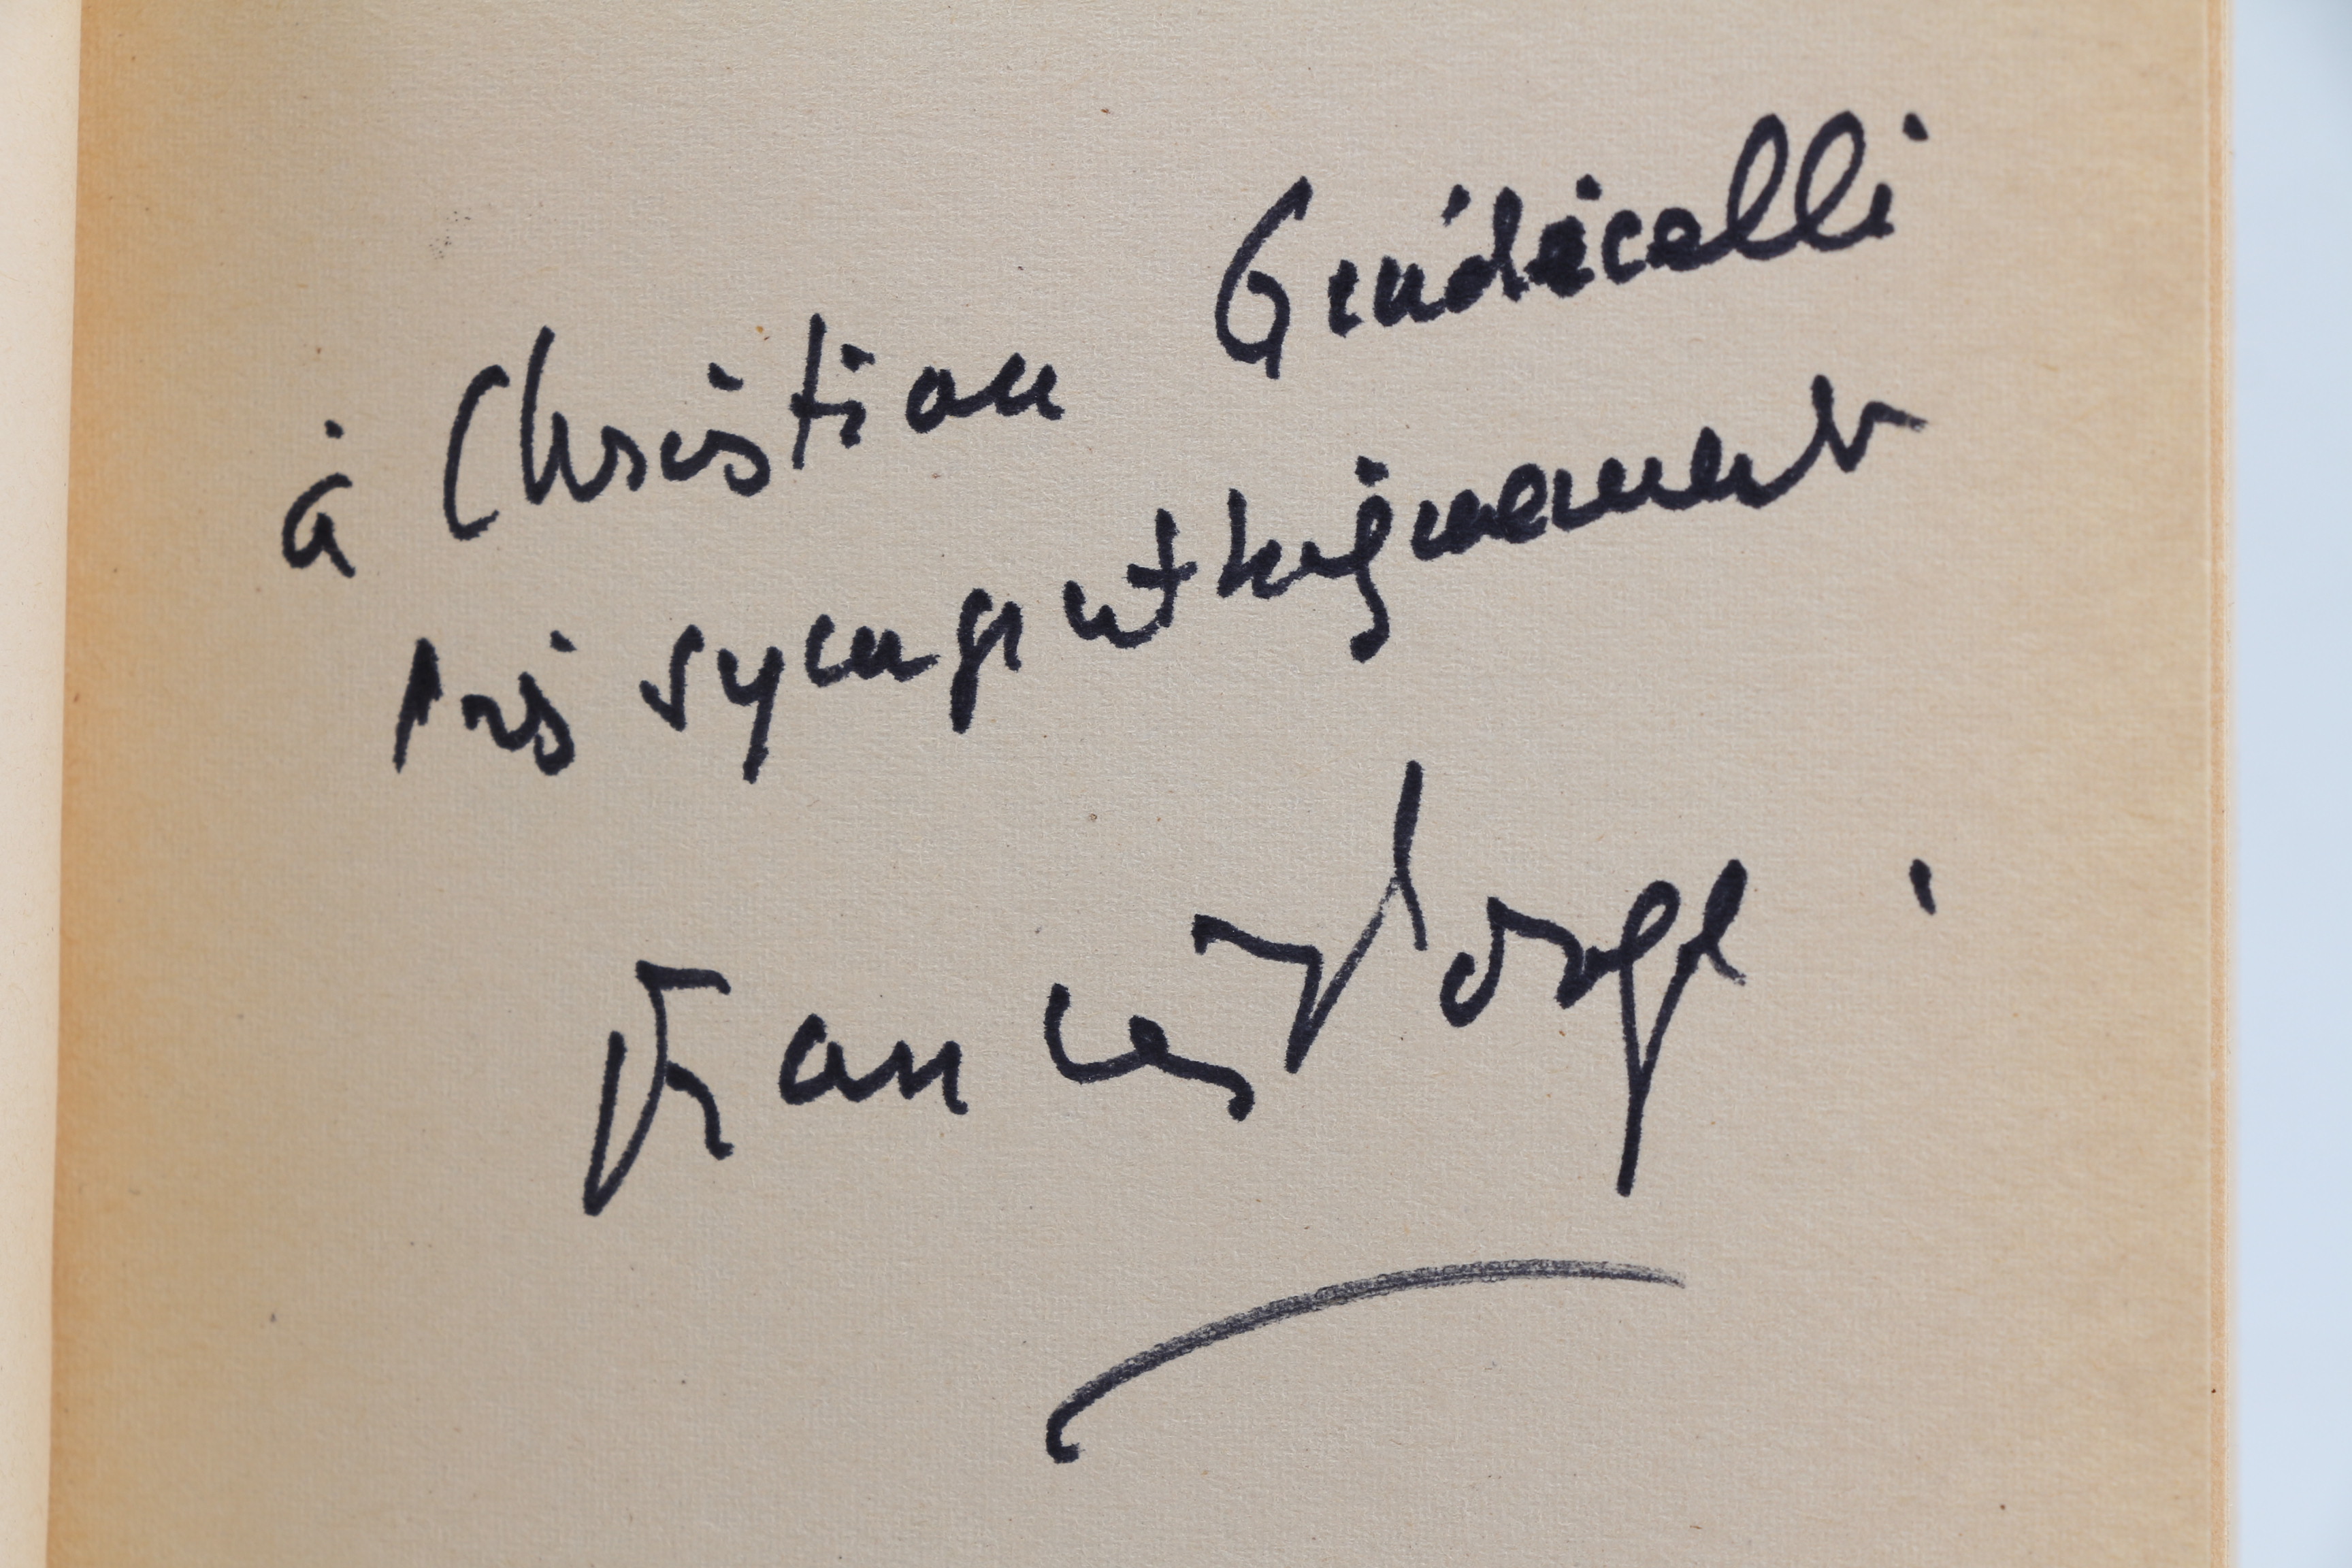 à Christian Giudicelli
très sympathiquement
Francis Ponge